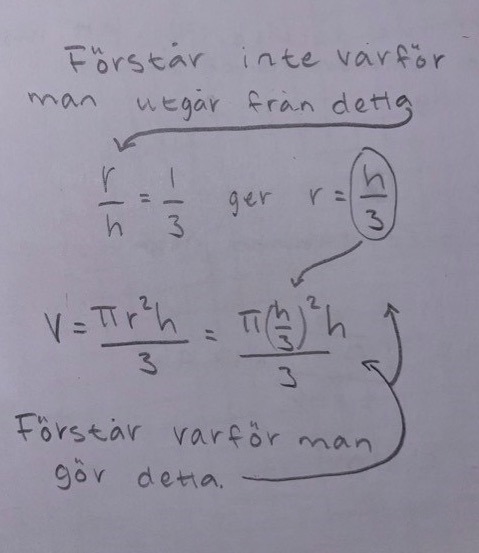 Förstår inte varför
man utgår från detta
r/h = 1/3 ger r = h/3
V = πr²h/3 = π(h/3)²h/3
Förstår varför man
gör detta.